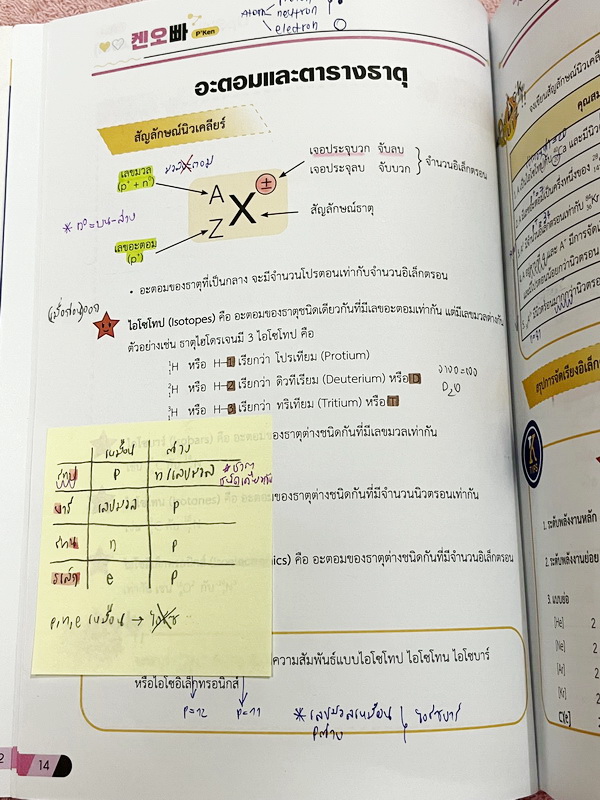 Atom neutron
electron
켄오빠 P'Ken
อะตอมและตารางธาตุ
สัญลักษณ์นิวเคลียร์
เลขมวล
(p⁺ + n⁰)
A
Z
X
±
เจอประจุบวก จับลบ
เจอประจุลบ จับบวก
จำนวนอิเล็กตรอน
สัญลักษณ์ธาตุ
* n⁰ = บน-ล่าง
เลขอะตอม
(p⁺)
• อะตอมของธาตุที่เป็นกลาง จะมีจำนวนโปรตอนเท่ากับจำนวนอิเล็กตรอน
ไอโซโทป (Isotopes) คือ อะตอมของธาตุชนิดเดียวกันที่มีเลขอะตอมเท่ากัน แต่มีเลขมวลต่างกัน
ตัวอย่างเช่น ธาตุไฮโดรเจนมี 3 ไอโซโทป คือ
¹₁H หรือ H-1 เรียกว่า โปรเทียม (Protium)
²₁H หรือ H-2 เรียกว่า ดิวทีเรียม (Deuterium) หรือ D
D₂O
³₁H หรือ H-3 เรียกว่า ทริเทียม (Tritium) หรือ T
ของธาตุต่างชนิดกันที่มีเลขมวลเท่ากัน
ของธาตุต่างชนิดกันที่มีจำนวนนิวตรอนเท่ากัน
nics) คือ อะตอมของธาตุต่างชนิดกันที่มีจำนวนอิเล็กตรอน
เหมือน ต่าง
โทป P n/เลขมวล
บาร์ เลขมวล P
โทน n P
อิเล็ก e P
p,n,e เหมือน →
ความสัมพันธ์แบบไอโซโทป ไอโซโทน ไอโซบาร์
หรือไอโซอิเล็กทรอนิกส์
P=12 P=11
* เลขมวลเหมือน ไอโซบาร์
P ต่าง
14
จงเขียนสัญลักษณ์นิวเคลี
คุณสม
สรุปการจัดเรียงอิเล็ก
1. ระดับพลังงานหลัก
2. ระดับพลังงานย่อย
3. แบบย่อ
[He] 2
[Ne] 2
[Ar] 2
[Kr] 2